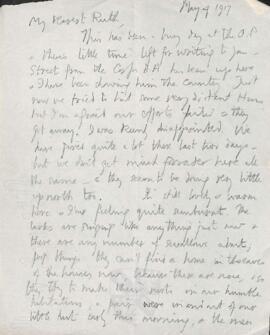 May 9 1917
My dearest Ruth,
This has been a busy day at the O.P.
& there's little time left for writing to you.
Street from the Corps H.A. has been up here
& I have been showing him the country. Just
now we tried to
but I'm afraid our efforts failed & they
got away. I was keenly disappointed. We
have fired quite a lot these last two days -
but we don't get much forrader here all
the same - & they seem to be doing very little
up north too. It's still lovely & warm
here & I'm feeling quite sunburnt. The
larks are singing like anything just now &
there are any number of swallows about,
poor things, they can't find a home in the eaves
of the houses now, because there are none, & so
they try to make their nests on our humble
habitations. A pair were in and out of our
little hut early this morning, & the men